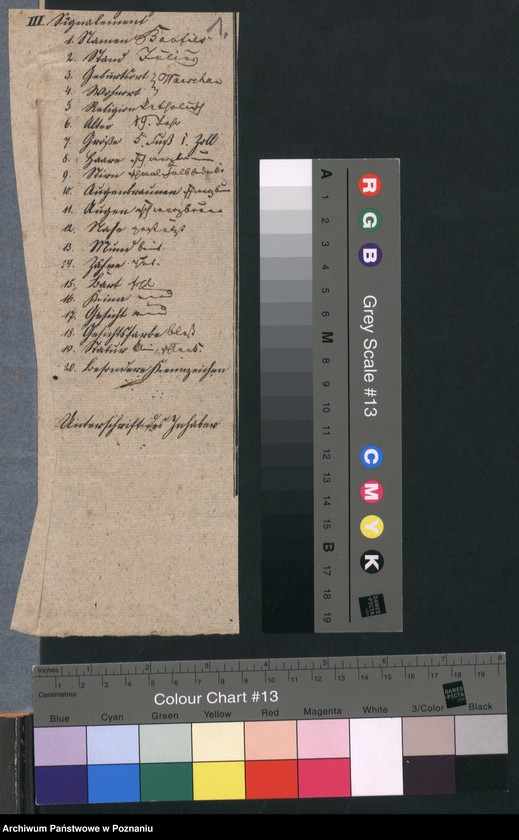 III. Signalement
1.
1. Namen
2. Stand
3. Geburtsort } Warschau
4. Wohnort
5 Religion katholisch
6. Alter 19. Jahr
7. Größe 5. Fuß 1. Zoll
8. Haare schwarzbraun
9. Stirn
10. Augenbraunen
11. Augen schwarzbraun
12. Nase
13. Mund breit.
14. Zähne gut.
15. Bart
16. Kinn rund
17. Gesicht rund
18. Gesichtsfarbe blaß
19. Statur
20. besondere Kennzeichen
Unterschrift des Inhaber
A 1 2 3 4 5 6 M 8 9 10 11 12 13 14 15 B 17 18 19
R G B Grey Scale #13 C M Y K
DANES PICTA
Inches 1 2 3 4 5 6 7 8
Centimetres 1 2 3 4 5 6 7 8 9 10 11 12 13 14 15 16 17 18 19
Colour Chart #13
DANES PICTA .com
Blue Cyan Green Yellow Red Magenta White 3/Color Black
Archiwum Państwowe w Poznaniu